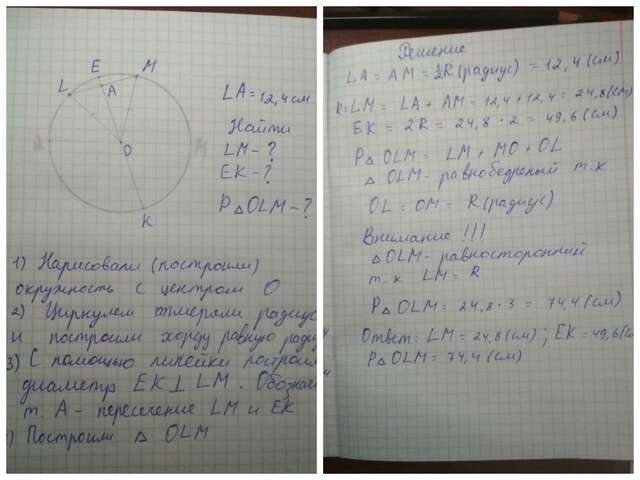 E
M
L
A
O
K
LA = 12,4 см
Найти
LM - ?
EK - ?
P△OLM - ?
1) Нарисовали (построили)
окружность с центром О
2) Циркулем отмеряли радиус
и построили хорду равную радиу
3) С помощью линейки построили
диаметр EK⊥LM. Обознач
т. А - пересечение LM и EK
) Построили △ OLM
Решение
LA = AM = ½R (радиус) = 12,4 (см)
R = LM = LA + AM = 12,4 + 12,4 = 24,8 (см)
EK = 2R = 24,8 · 2 = 49,6 (см)
P△ OLM = LM + MO + OL
△ OLM - равнобедреный т.к.
OL = OM = R (радиус)
Внимание !!!
△OLM - равносторонний
т.к. LM = R
P△ OLM = 24,8 · 3 = 74,4 (см)
Ответ: LM = 24,8 (см) ; EK = 49,6 (см
P△ OLM = 74,4 (см)